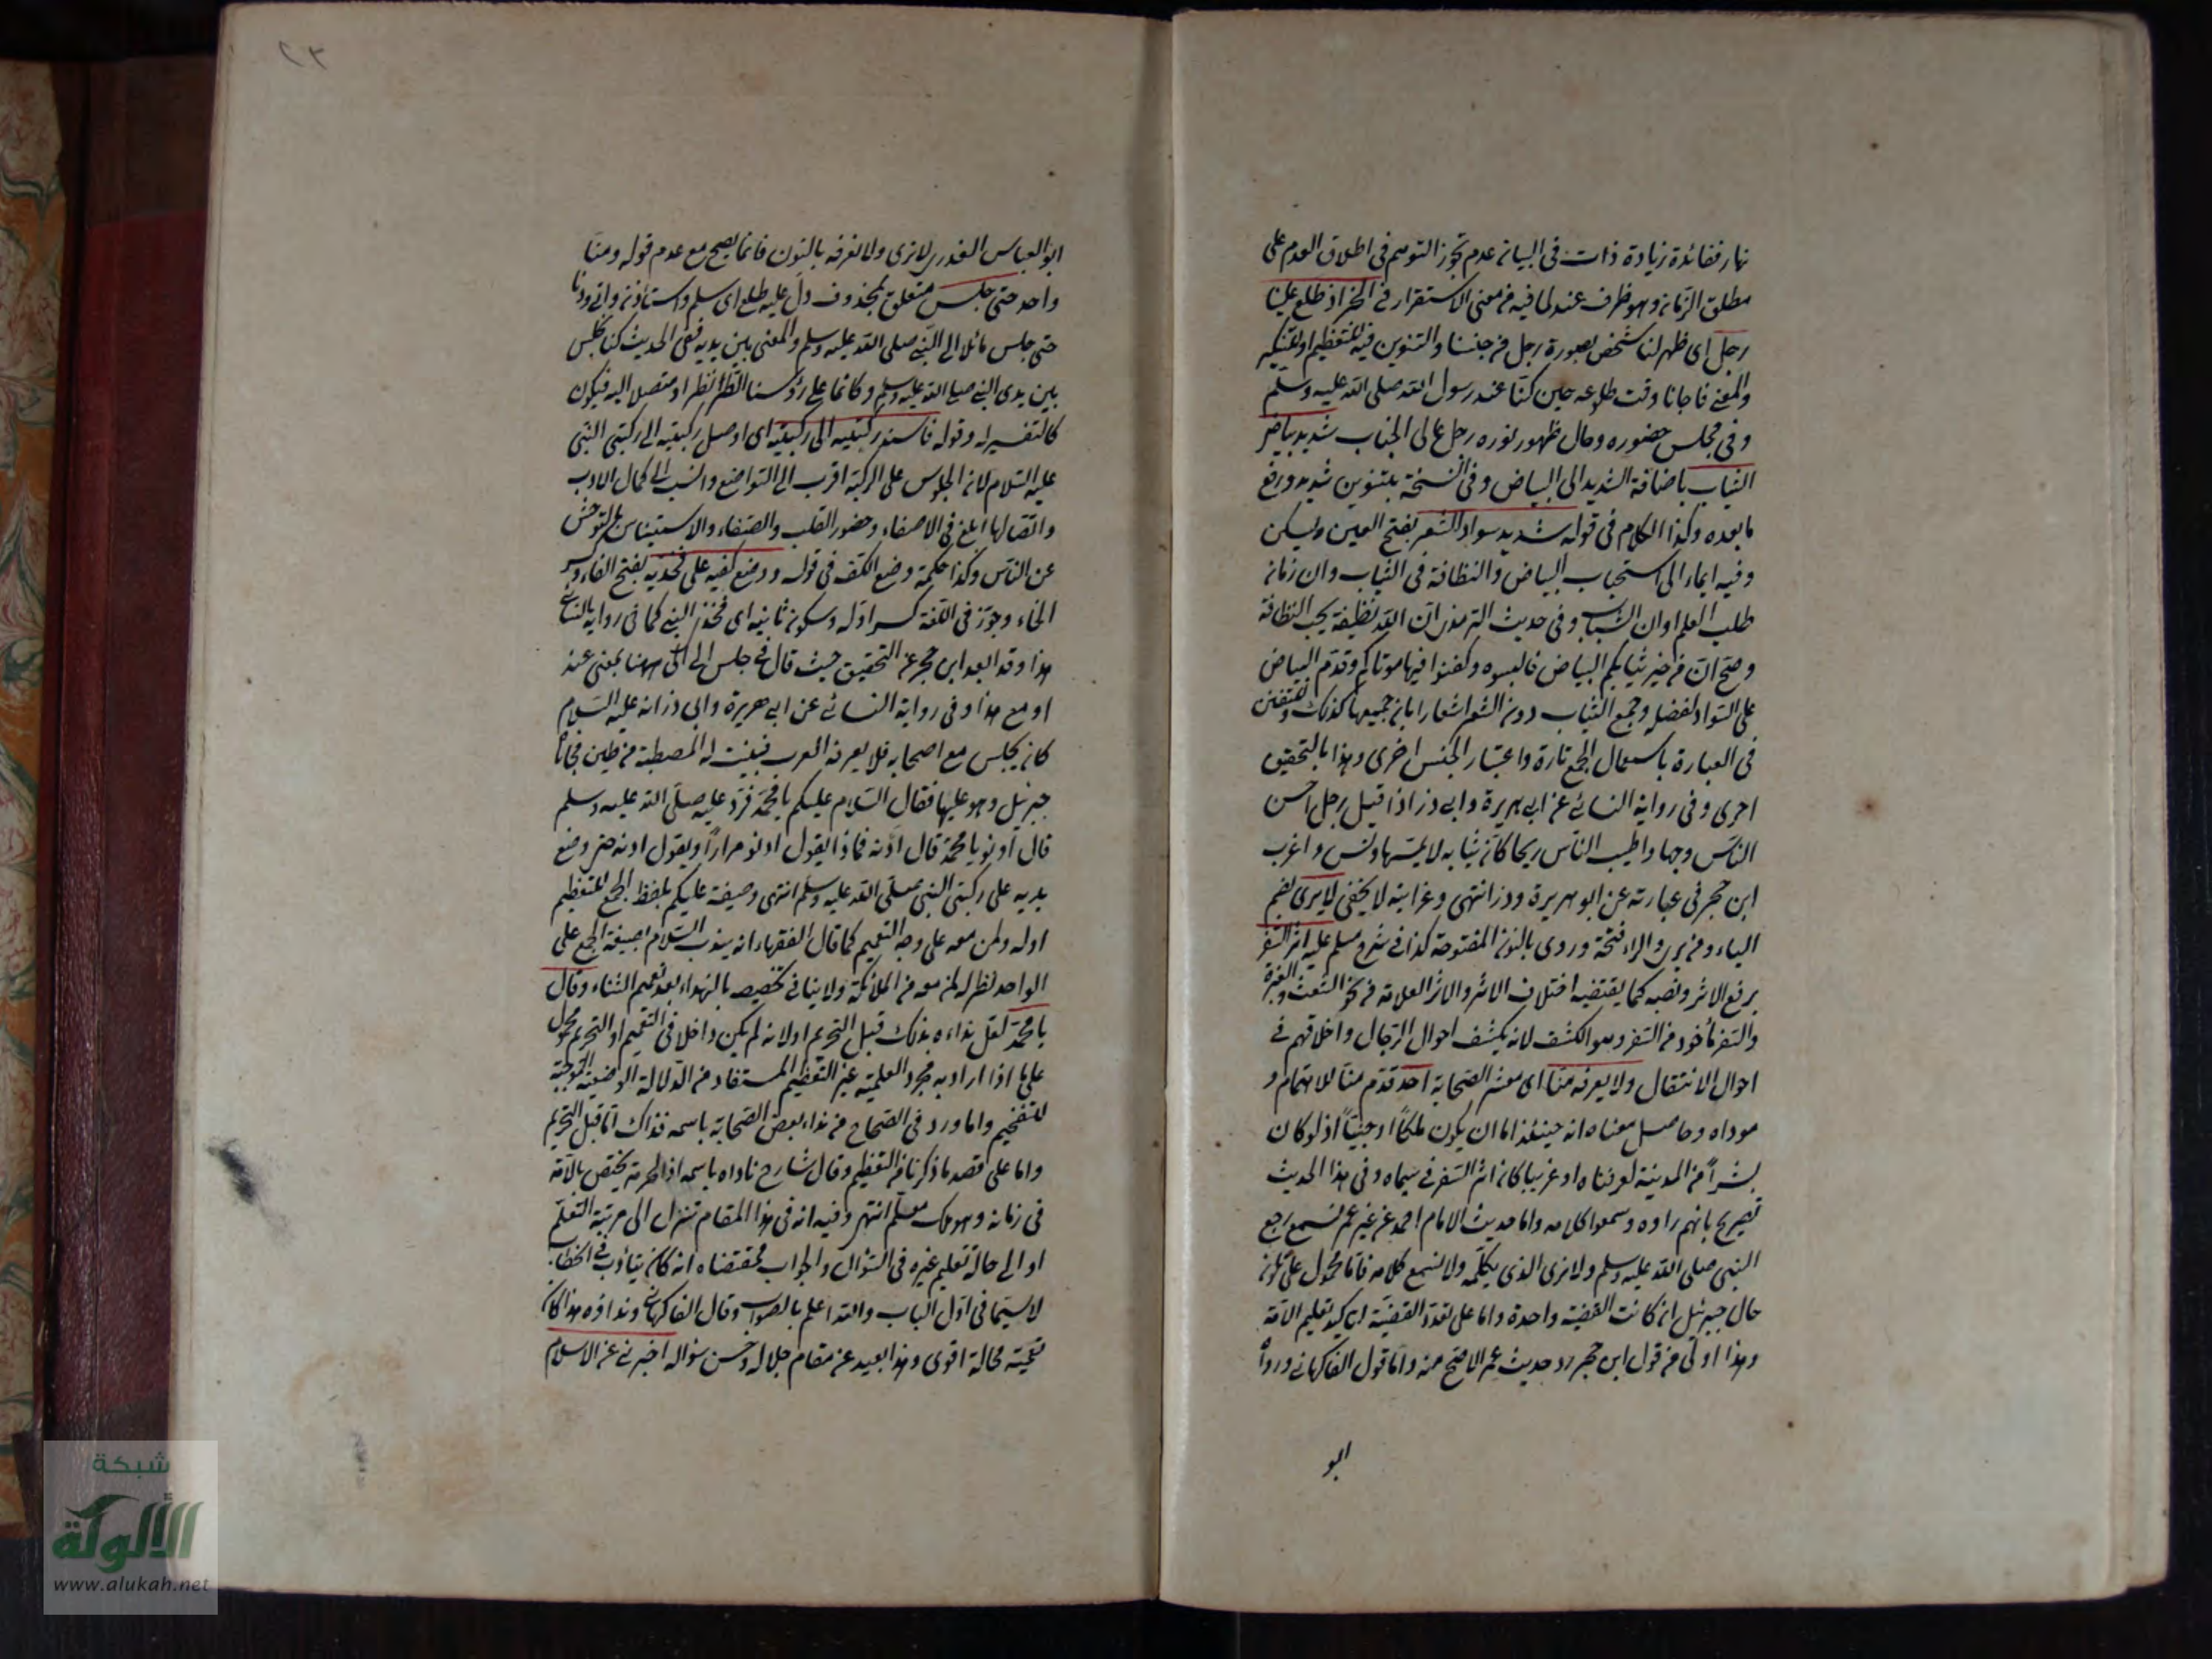 نهار ففائدة زيادة ذات في البيان عدم تجوز التوسع في اطلاق اليوم على
مطلق الزمان وهو ظرف عند لما فيه من معنى الاستقرار في الخبر اذ طلع علينا
رجل اي ظهر لنا شخص بصورة رجل من جنسنا والتنوين فيه للتعظيم او للتنكير
والمعنى فاجانا وقت طلوعه حين كنا عند رسول الله صلى الله عليه وسلم
وفي مجلس حضوره وحال ظهور نوره رجل عالى الجناب شديد بياض
الثياب باضافة الشديد الى البياض وفي نسخة بتنوين شديد ورفع
ما بعده وكذا الكلام في قوله شديد سواد الشعر بفتح العين ويسكن
وفيه ايماء الى استحباب البياض والنظافة في الثياب وان زمان
طلب العلم اوان الشباب وفي حديث الترمذي ان الله نظيف يحب النظافة
وصح ان من خير ثيابكم البياض فالبسوه وكفنوا فيها موتاكم وقدم البياض
على السواد لفضله وجمع الثياب دون الشعر اشعارا بان جميعها كذلك وللتفنن
في العبارة باستعمال الجمع تارة واعتبار الجنس اخرى وهذا بالتحقيق
احرى وفي رواية النسائي عن ابي هريرة وابي ذر اذ اقبل رجل احسن
الناس وجها واطيب الناس ريحا كان ثيابه لا يمسها دنس واغرب
ابن حجر في عبارته عن ابو هريرة وذر انتهى وغرابته لا يخفى لا يرى بضم
الياء وفتح الراء وروى بالنون المفتوحة كذا في شرح مسلم عليه اثر السفر
برفع الاثر ونصبه كما يقتضيه اختلاف الاثر والاثر العلامة من نحو الشعث والغبرة
والسفر مأخوذ من السفر وهو الكشف لانه يكشف احوال الرجال واخلاقهم في
احوال الانتقال ولا يعرفه منا اي معشر الصحابة احد قدم منا للاهتمام و
موداه وحاصل معناه انه حينئذ اما ان يكون ملكا او جنيا اذ لو كان
بشرا من المدينة لعرفناه او غريبا كان اثر السفر في سيماه وفي هذا الحديث
تصريح بانهم راوه وسمعوا كلامه واما حديث الامام احمد عن غير عمر نسمع رجع
النبي صلى الله عليه وسلم ولا نرى الذي يكلمه ولا نسمع كلامه فاما محمول على
حال جبرئيل ان كانت القضية واحدة واما على تعدد القضية لتاكيد تعليم الامة
وهذا اولى من قول ابن حجر رد حديث عمر الاصح منه واما قول الفاكهاني ورواه
ابو
ابو العباس العذري لا نرى ولا نعرفه بالنون فانما يصح مع عدم قوله ومنا
واحد حتى جلس متعلق بمحذوف دل عليه طلع اي سلم واستأذن واتى ودنا
حتى جلس مائلا الى النبي صلى الله عليه وسلم والمعنى بين يديه ففي الحديث كنا نجلس
بين يدي النبي صلى الله عليه وسلم وكانما على رؤسنا الطير او متصلا اليه فيكون
كالتفسير له وقوله فاسند ركبتيه الى ركبتيه اي اوصل ركبتيه الى ركبتي النبي
عليه السلام لان الجلوس على الركبة اقرب الى التواضع وانسب الى كمال الادب
واتصالها ابلغ في الاصغاء وحضور القلب والصفاء والاستيناس
عن الناس وكذا حكمة وضع الكف في قوله ووضع كفيه على فخذيه بفتح الفاء وكسر
الخاء وجوز في اللغة كسر اوله وسكون ثانيه اي فخذ النبي كما في رواية النسائي
هذا وقد ابعد ابن حجر عن التحقيق حيث قال في جلس الى الى ههنا بمعنى عند
او مع هذا وفي رواية النسائي عن ابي هريرة وابي ذر انه عليه السلام
كان يجلس مع اصحابه فلا يعرفه العرب فبنيت له المصطبة من طين فجاءنا
جبرئيل وهو عليها فقال السلام عليكم يا محمد فرد عليه صلى الله عليه وسلم
قال ادنو يا محمد قال ادنه فما ذا يقول ادنو مرارا ويقول ادنه حتى وضع
يديه على ركبتي النبي صلى الله عليه وسلم انتهى وصيغة عليكم بلفظ الجمع للتعظيم
او له ولمن معه على وجه التعميم كما قال الفقهاء انه يندب السلام بصيغة الجمع على
الواحد نظرا لمن معه من الملائكة ولا ينافي تخصيصه بالنداء بعد تعميم الثناء وقال
يا محمد لعل نداءه بذلك قبل التحريم او لانه لم يكن داخلا في التعميم او التحريم محمول
على ما اذا اراد به مجرد العلمية عن التعظيم المستفاد من الدلالة الوضعية
للتفخيم واما ورد في الصحاح من نداء بعض الصحابة باسمه فذاك اما قبل التحريم
واما على قصد ما ذكرنا من التعظيم وقال شارح ناداه باسمه اذ الحرمة يختص بالامة
في زمانه وهو ملك معلم انتهى وفيه انه في هذا المقام تنزل الى مرتبة التعلم
او الى حالة تعليم غيره في السؤال والجواب فمقتضاه انه كان يتأدب في الخطاب
لا سيما في اول الباب والله اعلم بالصواب وقال الفاكهاني ونداؤه هذا كان
تحيته محالة اقوى وهذا بعيد عن مقام جلاله وحسن سؤاله اخبرني عن الاسلام
شبكة
الألوكة
www.alukah.net